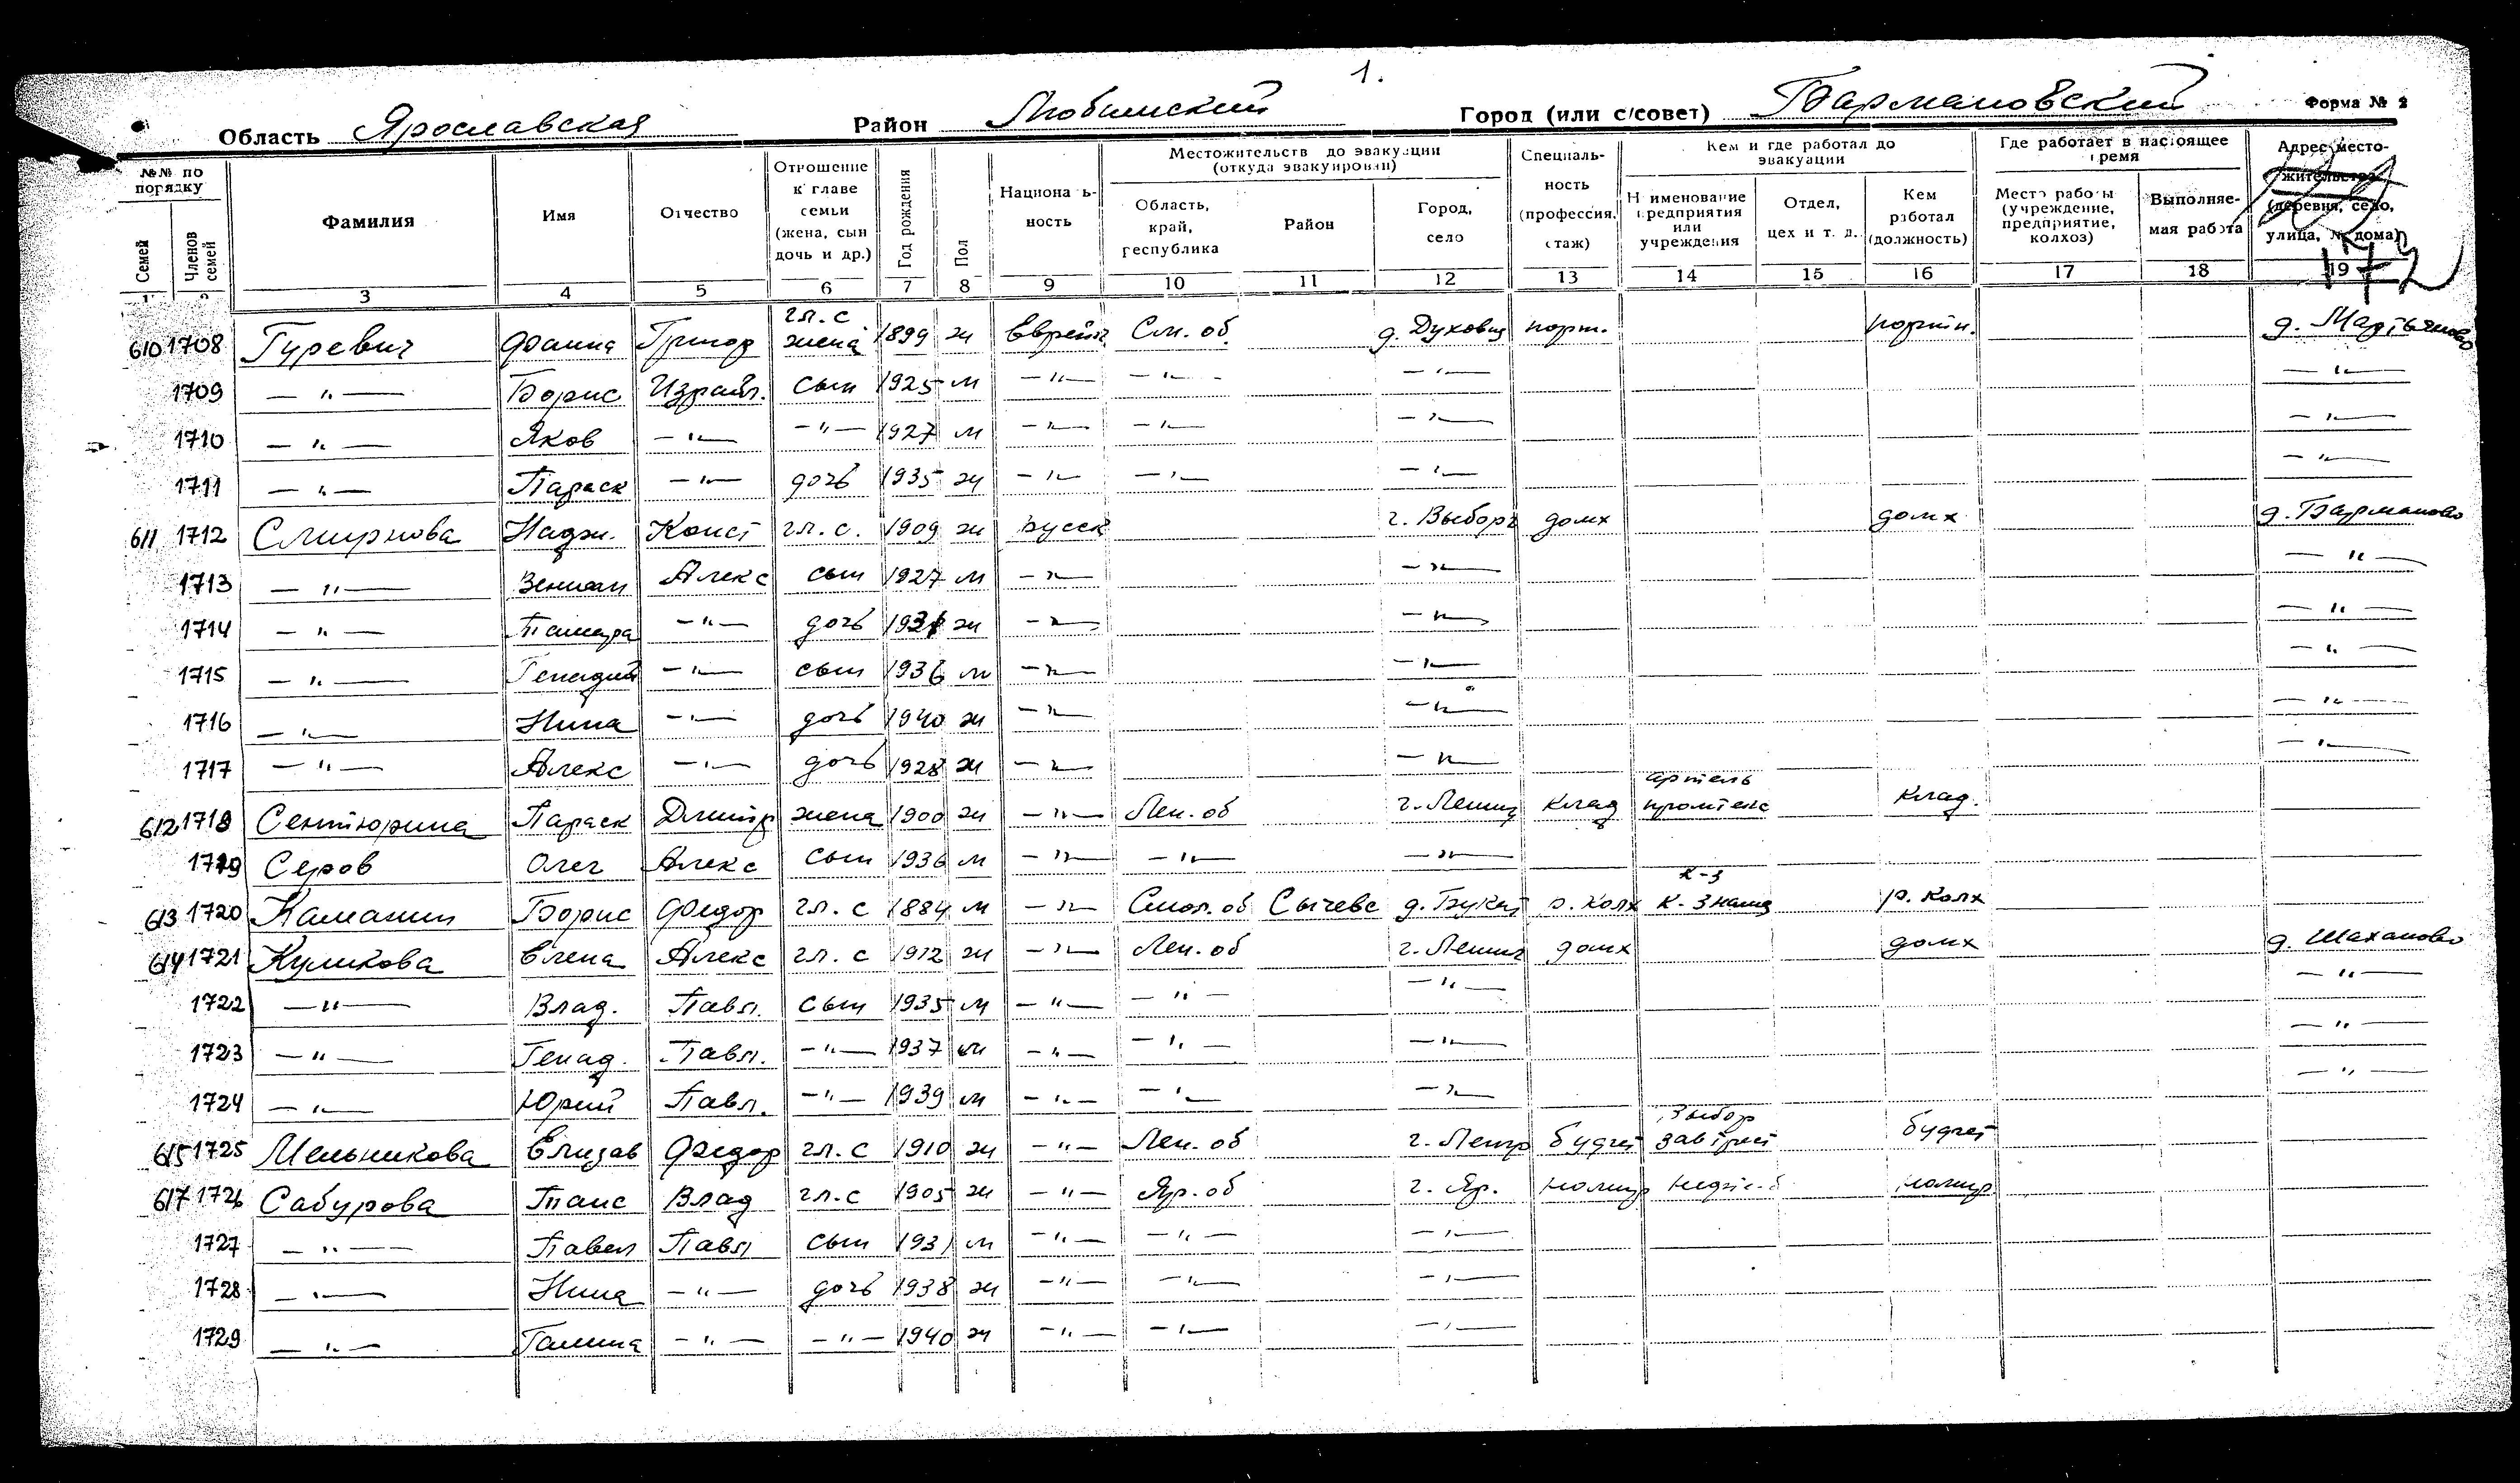 1.
Область Ярославская Район Любимский Город (или с/совет) Бармановский Форма № 2
№№ по порядку Фамилия Имя Отчество Отношение к главе семьи (жена, сын дочь и др.) Год рождения Пол Национа ь-ность Местожительств до эвакуации (откуда эвакуирован) Специаль-ность (профессия, стаж) Кем и где работал до эвакуации Где работает в настоящее время Адрес место-жительства (деревня, село, улица, № дома)
Семей Членов семей Область, край, республика Район Город, село Наименование предприятия или учреждения Отдел, цех и т. д. Кем работал (должность) Место работы (учреждение, предприятие, колхоз) Выполняе-мая работа
172
3 4 5 6 7 8 9 10 11 12 13 14 15 16 17 18 19
610 1708 Гуревич Фаина Григор гл. с жена 1899 ж Еврейк См. об. д. Духовщ порт. портн. д. Мартьяново
1709 — " — Борис Израил. сын 1925 м — " — — " — — " — — " —
1710 — " — Яков — " — — " — 1927 м — " — — " — — " — — " —
1711 — " — Параск — " — дочь 1935 ж — " — — " — — " — — " —
611 1712 Смирнова Надж. Конст гл. с. 1909 ж русск г. Выборг домх домх д. Барманово
1713 — " — Алекс сын 1927 м — " — — " — — " —
1714 — " — Тамара — " — дочь 1931 ж — " — — " — — " —
1715 — " — Генадий — " — сын 1936 м — " — — " — — " —
1716 — " — Нина — " — дочь 1940 ж — " — — " — — " —
1717 — " — Алекс — " — дочь 1928 ж — " — — " — — " —
612 1718 Сентюрина Параск Дмитр жена 1900 ж — " — Лен. об г. Ленинг клад артель промтекс клад.
1719 Серов Олег Алекс сын 1936 м — " — — " — — " —
613 1720 Каманин Борис Федор гл. с 1884 м — " — Смол. об Сычевс р. колх к-з К. Знамя р. колх
614 1721 Куликова Елена Алекс гл. с 1912 ж — " — Лен. об г. Ленинг домх домх д. Шаханово
1722 — " — Влад. Павл. сын 1935 м — " — — " — — " — — " —
1723 — " — Генад. Павл. — " — 1937 м — " — — " — — " — — " —
1724 — " — Юрий Павл. — " — 1939 м — " — — " — — " — — " —
615 1725 Мельникова Елизав Федор гл. с 1910 ж — " — Лен. об г. Ленгр бухгт бухгт
617 1726 Сабурова Таис Влад гл. с 1905 ж — " — Яр. об г. Яр.
1727 — " — Павел Павл сын 1931 м — " — — " — — " —
1728 — " — Нина — " — дочь 1938 ж — " — — " — — " —
1729 — " — Галина — " — — " — 1940 ж — " — — " — — " —